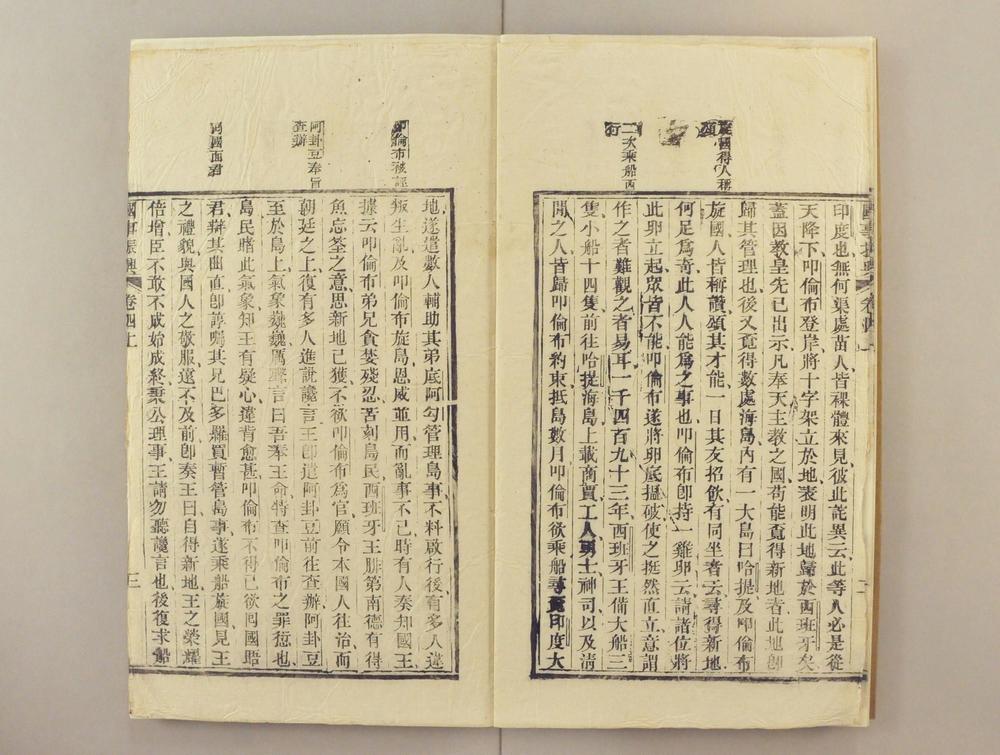 旋國得人稱
頌
二次乘船西
行
印度也無何渠處苗人皆裸體來見彼此詫異云此等人必是從
天降下叩倫布登岸將十字架立於地表明此地歸於西班牙矣
蓋因教皇先已出示凡奉天主教之國苟能覓得新地者此地卽
歸其管理也後又覓得數處海島內有一大島曰哈提及叩倫布
旋國人皆稱讚頌其才能一日其友招飲有同坐者云尋得新地
何足爲奇此人人能爲之事也叩倫布卽持一雞卵云請諸位將
此卵立起眾皆不能叩倫布遂將卵底搵破使之挺然直立意謂
作之者難觀之者易耳一千四百九十三年西班牙王備大船三
隻小船十四隻前往哈提海島上載商賈工人男士神司以及清
閒之人皆歸叩倫布約束抵島數月叩倫布欲乘船尋覓印度大
叩倫布被誣
阿卦豆奉旨
查辦
回國面君
地遂遣數人輔助其弟底阿勾管理島事不料啟行後有多人違
叛生亂及叩倫布旋島恩威並用而亂事不已時有人奏知國王
據云叩倫布弟兄貪婪殘忍苦刻島民西班牙王腓第南德有得
魚忘筌之意思新地已獲不欲叩倫布爲官願令本國人往治而
朝廷之上復有多人進說讒言王卽遣阿卦豆前往查辦阿卦豆
至於島上氣象巍巍厲聲言曰吾奉王命特查叩倫布之罪愆也
島民睹此氣象知王有疑心違背愈甚叩倫布不得已欲回國晤
君辯其曲直卽諄囑其兄巴多羅買暫管島事遂乘船旋國見王
之禮貌與國人之敬服遠不及前卽奏王曰自得新地王之榮耀
倍增臣不敢不成始成終秉公理事王請勿聽讒言也後復求船
國事振興 卷四上 三